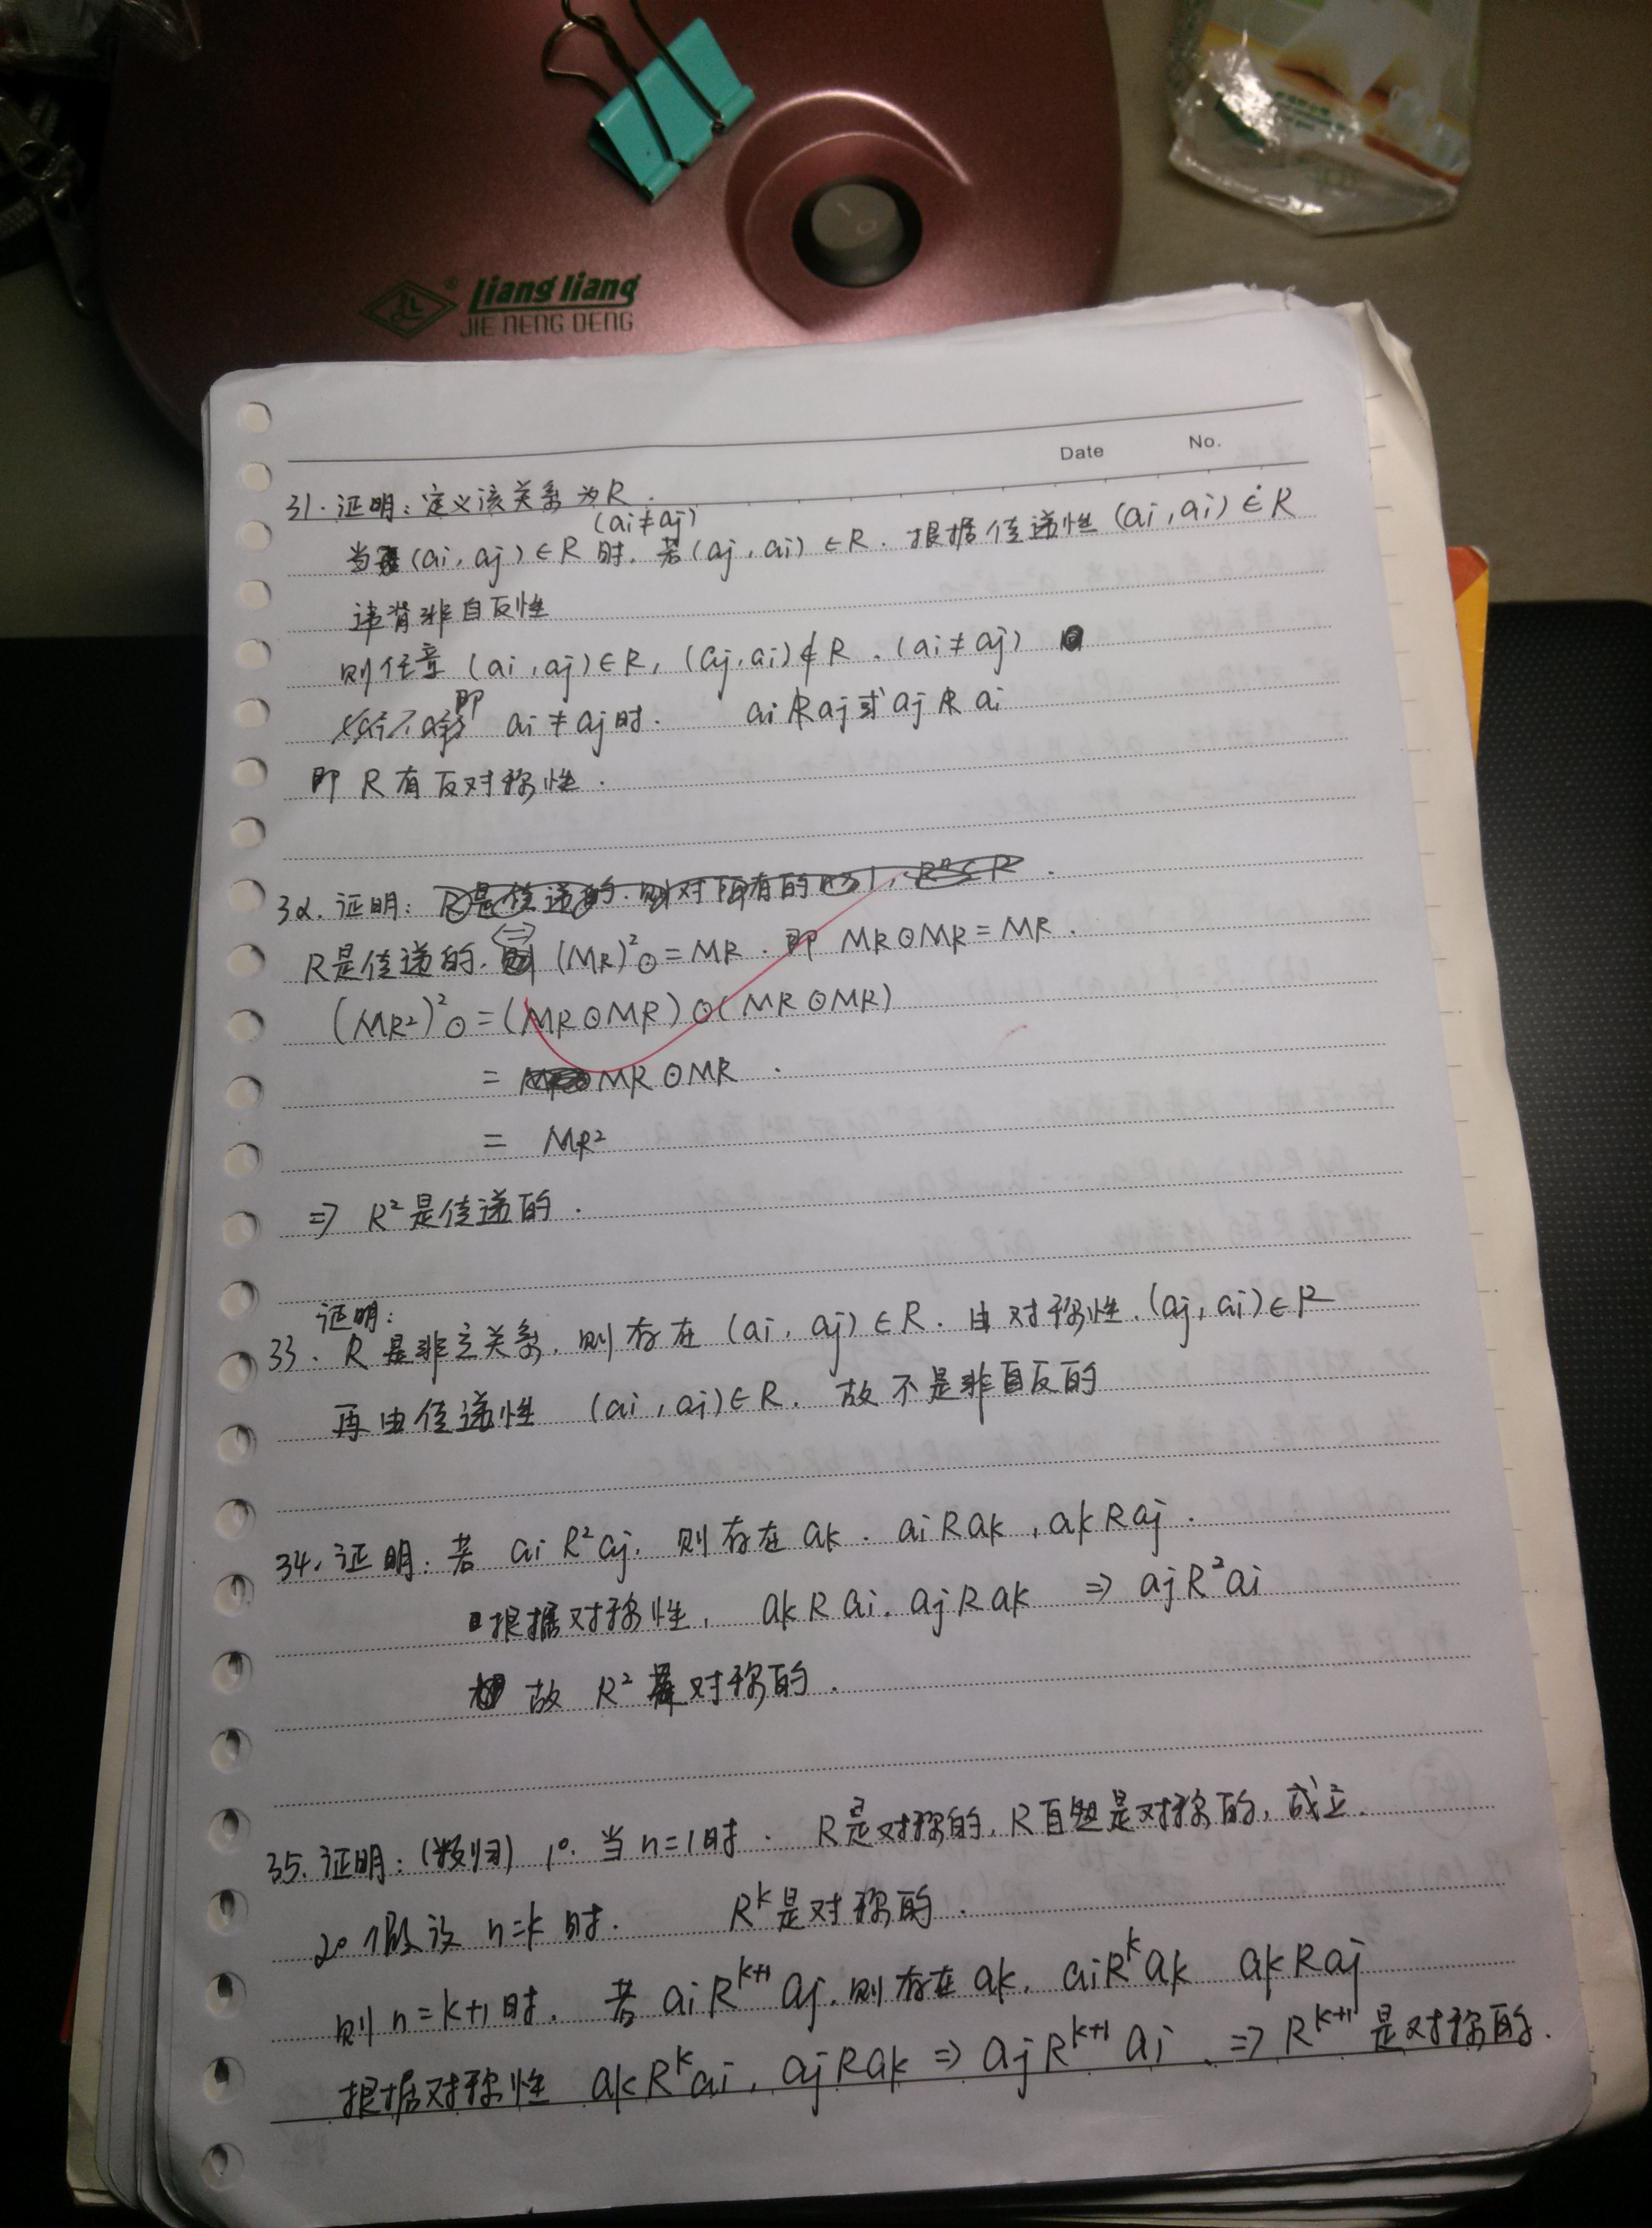 Liang liang
JIE NENG DENG
Date No.
31. 证明: 定义该关系为R.
(ai≠aj)
当(ai, aj)∈R 时. 若(aj, ai)∈R. 根据传递性 (ai, ai)∈R
违背非自反性
则任意 (ai, aj)∈R, (aj, ai)∉R. (ai≠aj)
即 ai≠aj时. ai R̸ aj或 aj R̸ ai
即 R有反对称性.
32. 证明:
R是传递的. ⇔ (MR)²⊙=MR. 即 MR⊙MR=MR.
(MR²)²⊙=(MR⊙MR)⊙(MR⊙MR)
= MR⊙MR.
= MR²
⇒ R²是传递的.
证明:
33. R是非空关系. 则存在 (ai, aj)∈R. 由对称性. (aj, ai)∈R
再由传递性 (ai, ai)∈R. 故不是非自反的
34. 证明: 若 ai R² aj. 则存在 ak. ai R ak, ak R aj.
根据对称性, ak R ai. aj R ak ⇒ aj R² ai
故 R² 是对称的.
35. 证明: (数归) 1°. 当 n=1时. R是对称的, R自然是对称的, 成立.
2° 假设 n=k 时. R^k是对称的.
则 n=k+1时. 若 ai R^k+1 aj. 则存在 ak. ai R^k ak ak R aj
根据对称性 ak R^k ai, aj R ak ⇒ aj R^k+1 ai. ⇒ R^k+1 是对称的.